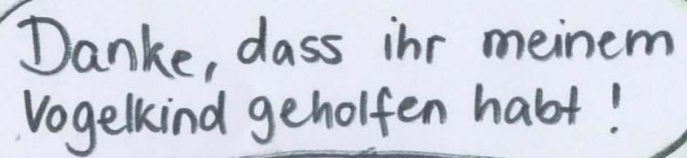 Danke, dass ihr meinem
Vogelkind geholfen habt!